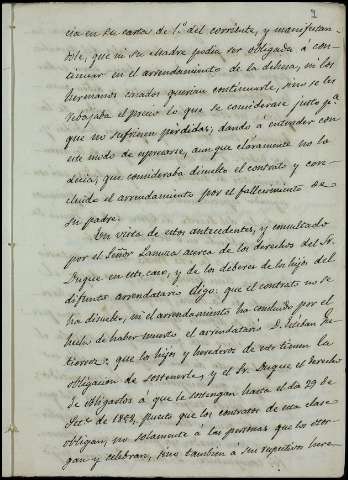 1
cia en su carta de 1.º del corriente, y manifestan-
dole, que ni su Madre podia ser obligada á con-
tinuar en el arrendamiento de la dehesa, ni los
hermanos casados querian continuarle, sino se les
rebajaba el precio lo que se considerase justo p.ª
que no sufriesen perdidas; dando á entender con
este modo de espresarse, aunque claramente no lo
decia, que consideraba disuelto el contrato y con-
cluido el arrendamiento por el fallecimiento de
su padre.
En vista de estos antecedentes, y consultado
por el Señor Lanuza acerca de los derechos del Sr.
Duque en este caso, y de los deberes de los hijos del
difunto arrendatario digo: que el contrato no se
ha disuelto, ni el arrendamiento ha concluido por el
hecho de haber muerto el arrendatario D. Esteban Gu-
tierrez; que los hijos y herederos de este tienen la
obligacion de sostenerle, y el Sr. Duque el derecho
de obligarlos á que le sostengan hasta el dia 29 de
Set.e de 1859, puesto que los contratos de esta clase
obligan, no solamente á las personas que los otor-
gan y celebran, sino tambien á sus respectivos here-